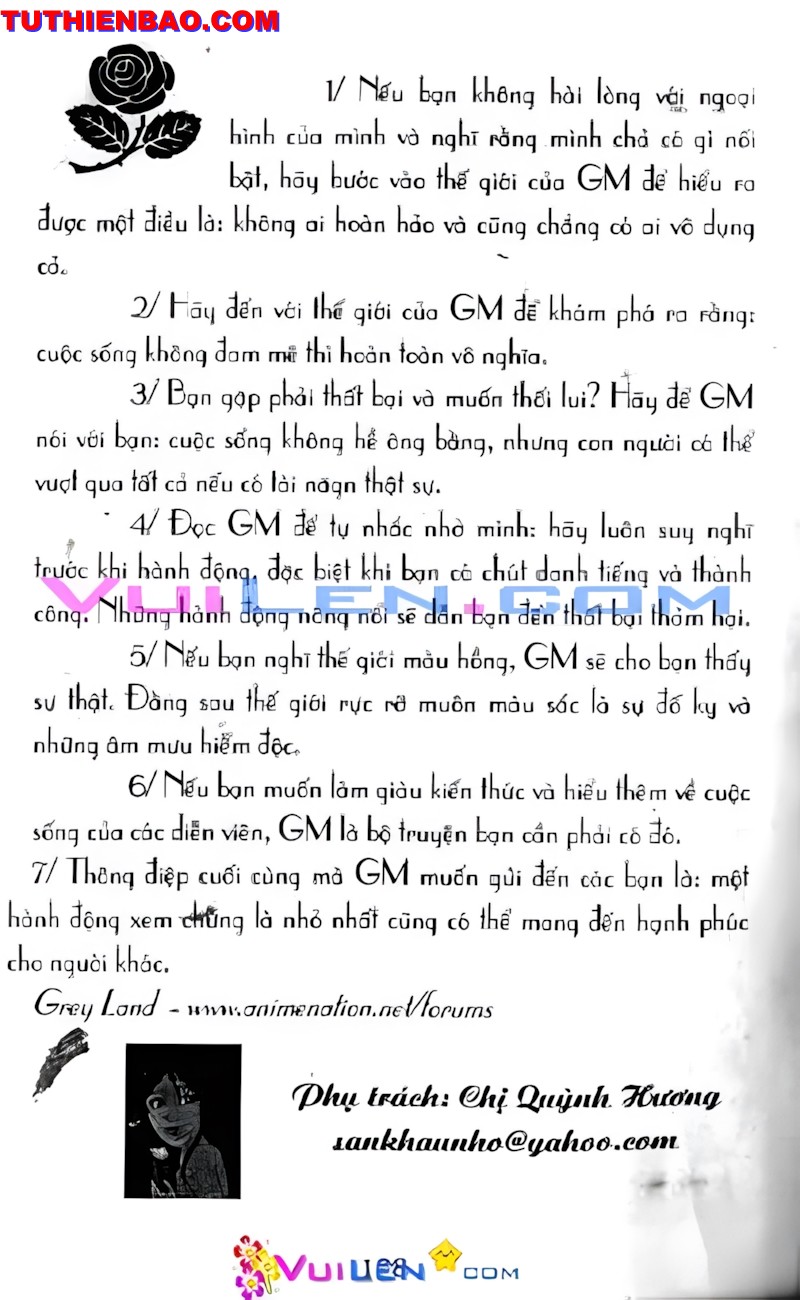 TUTHIENBAO.COM
1/ Nếu bạn không hài lòng với ngoại
hình của mình và nghĩ rằng mình chả có gì nổi
bật, hãy bước vào thế giới của GM để hiểu ra
được một điều là: không ai hoàn hảo và cũng chẳng có ai vô dụng
cả.
2/ Hãy đến với thế giới của GM để khám phá ra rằng:
cuộc sống không đam mê thì hoàn toàn vô nghĩa.
3/ Bạn gặp phải thất bại và muốn thối lui? Hãy để GM
nói với bạn: cuộc sống không hề ông bằng, nhưng con người có thể
vượt qua tất cả nếu có tài năgn thật sự.
4/ Đọc GM để tự nhắc nhở mình: hãy luôn suy nghĩ
trước khi hành động, đặc biệt khi bạn có chút danh tiếng và thành
VUILEN.COM
công. Những hành động nông nổi sẽ dẫn bạn đến thất bại thảm hại.
5/ Nếu bạn nghĩ thế giới màu hồng, GM sẽ cho bạn thấy
sự thật. Đằng sau thế giới rực rỡ muôn màu sắc là sự đố kỵ và
những âm mưu hiểm độc.
6/ Nếu bạn muốn làm giàu kiến thức và hiểu thêm về cuộc
sống của các diễn viên, GM là bộ truyện bạn cần phải có đó.
7/ Thông điệp cuối cùng mà GM muốn gửi đến các bạn là: một
hành động xem chừng là nhỏ nhất cũng có thể mang đến hạnh phúc
cho người khác.
Grey Land - www.animenation.net/forums
Phụ trách: Chị Quỳnh Hương
sankhaunho@yahoo.com
VUILEN.COM